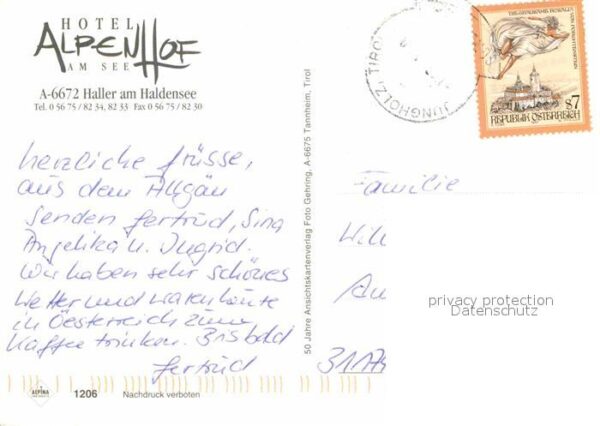 HOTEL
ALPENHOF
AM SEE
A-6672 Haller am Haldensee
Tel. 0 56 75 / 82 34, 82 33 Fax 0 56 75 / 82 30
herzliche Grüsse,
aus dem Allgäu
senden Gertrud, Sina
Angelika u. Ingrid.
Wir haben sehr schönes
Wetter und waren heute
in Oesterreich zum
Kaffee trinken. Bis bald
Gertrud
1206 Nachdruck verboten
ALPINA
50 Jahre Ansichtskartenverlag Foto Gehring, A-6675 Tannheim, Tirol
JUNGHOLZ, TIROL
s7
REPUBLIK ÖSTERREICH
Familie
Will
privacy protection
Datenschutz
3117